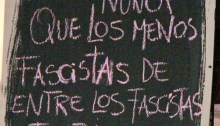 QUE LOS MENOS
FASCISTAS DE
ENTRE LOS FASCISTAS